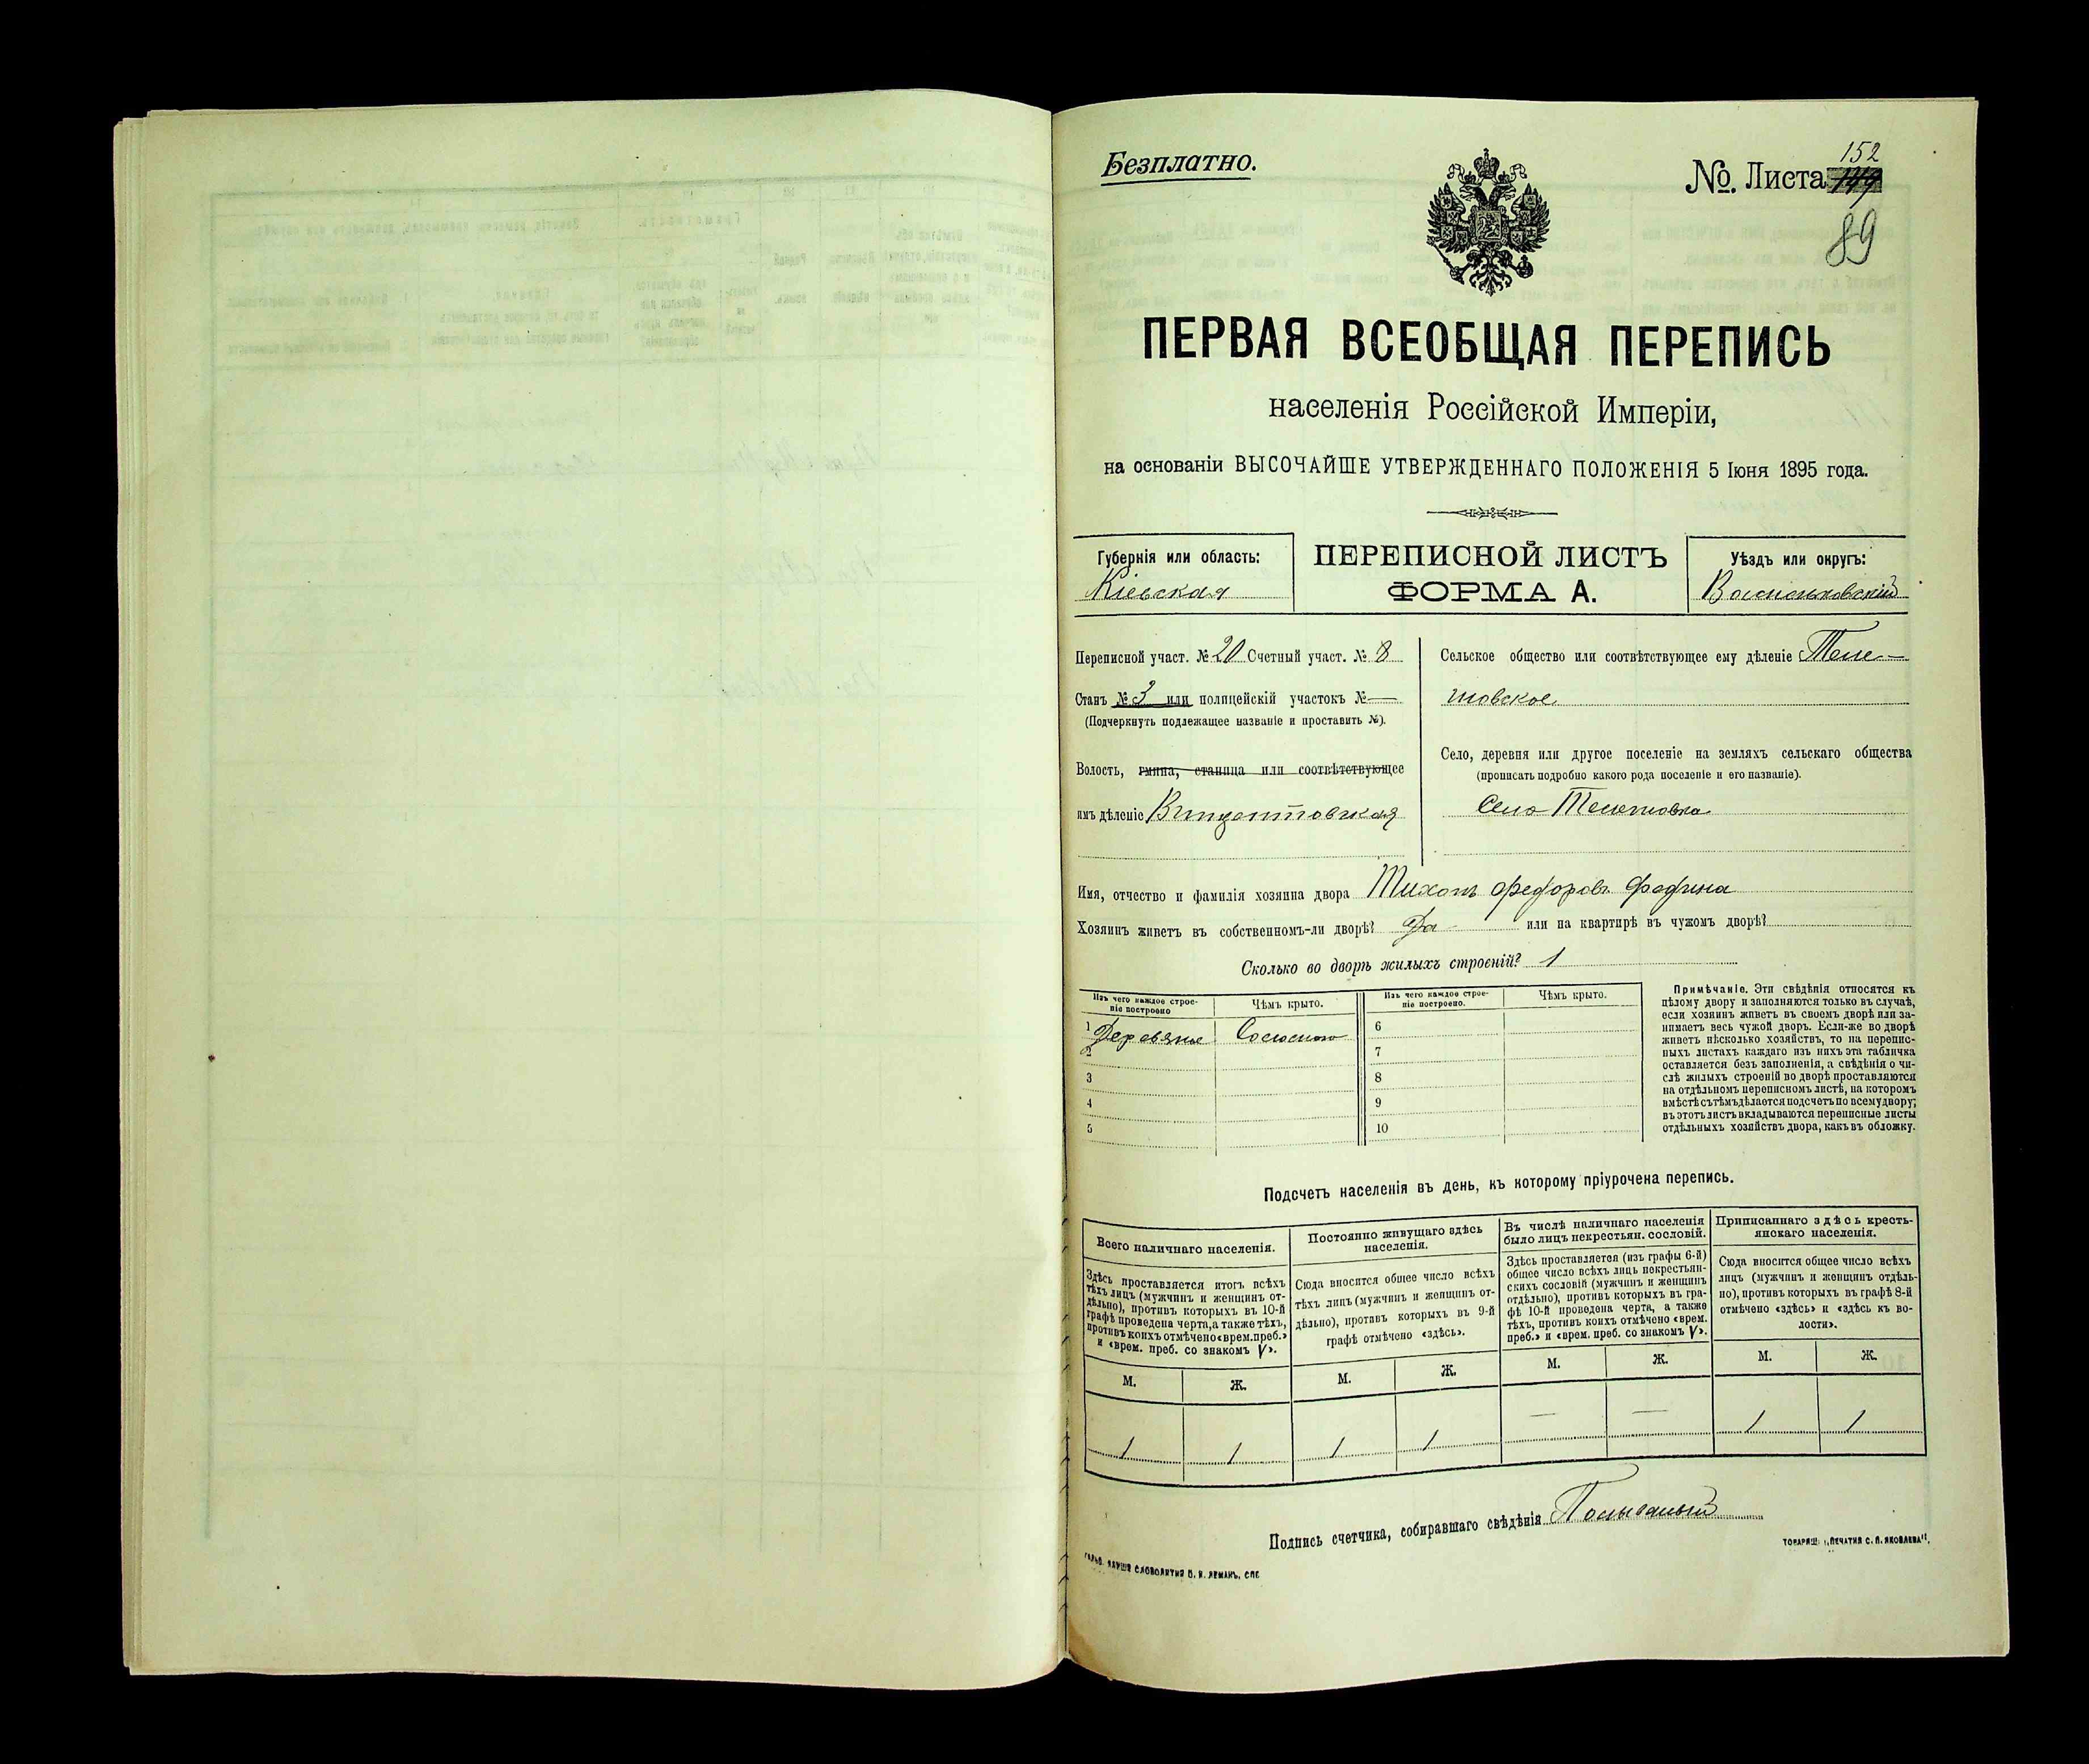 Безплатно.
№ Листа 149 152
89
ПЕРВАЯ ВСЕОБЩАЯ ПЕРЕПИСЬ
населенія Россійской Имперіи,
на основаніи ВЫСОЧАЙШЕ УТВЕРЖДЕННАГО ПОЛОЖЕНІЯ 5 Іюня 1895 года.
Губернія или область:
Кіевская
ПЕРЕПИСНОЙ ЛИСТЪ
ФОРМА А.
Уѣздъ или округъ:
Васильковскій
Переписной участ. № 20 Счетный участ. № 8
Станъ № 3 или полицейскій участокъ № —
(Подчеркнуть подлежащее названіе и проставить №).
Волость, гмина, станица или соотвѣтствующее
имъ дѣленіе Винцентовская
Сельское общество или соотвѣтствующее ему дѣленіе Теле-
шовское
Село, деревня или другое поселеніе на земляхъ сельскаго общества
(прописать подробно какого рода поселеніе и его названіе).
Село Телешовка
Имя, отчество и фамилія хозяина двора Тихонъ Федоровъ
Хозяинъ живетъ въ собственномъ-ли дворѣ? Да или на квартирѣ въ чужомъ дворѣ?
Сколько во дворѣ жилыхъ строеній? 1
Изъ чего каждое строе-
ніе построено
Чѣмъ крыто.
Изъ чего каждое строе-
ніе построено.
Чѣмъ крыто.
1 Деревяное Соломою
2
3
4
5
6
7
8
9
10
Примѣчаніе. Эти свѣдѣнія относятся къ
цѣлому двору и заполняются только въ случаѣ,
если хозяинъ живетъ въ своемъ дворѣ или за-
нимаетъ весь чужой дворъ. Если-же во дворѣ
живетъ нѣсколько хозяйствъ, то на перепис-
ныхъ листахъ каждаго изъ нихъ эта табличка
оставляется безъ заполненія, а свѣдѣнія о чи-
слѣ жилыхъ строеній во дворѣ проставляются
на отдѣльномъ переписномъ листѣ, на которомъ
вмѣстѣ съ тѣмъ дѣлается подсчетъ по всему двору;
въ этотъ листъ вкладываются переписные листы
отдѣльныхъ хозяйствъ двора, какъ въ обложку.
Подсчетъ населенія въ день, къ которому пріурочена перепись.
Всего наличнаго населенія.
Здѣсь проставляется итогъ всѣхъ
тѣхъ лицъ (мужчинъ и женщинъ от-
дѣльно), противъ которыхъ въ 10-й
графѣ проведена черта, а также тѣхъ,
противъ коихъ отмѣчено «врем. преб.»
и «врем. преб. со знакомъ V».
Постоянно живущаго здѣсь
населенія.
Сюда вносится общее число всѣхъ
тѣхъ лицъ (мужчинъ и женщинъ от-
дѣльно), противъ которыхъ въ 9-й
графѣ отмѣчено «здѣсь».
Въ числѣ наличнаго населенія
было лицъ некрестьян. сословій.
Здѣсь проставляется (изъ графы 6-й)
общее число всѣхъ лицъ некрестьян-
скихъ сословій (мужчинъ и женщинъ
отдѣльно), противъ которыхъ въ гра-
фѣ 10-й проведена черта, а также
тѣхъ, противъ коихъ отмѣчено «врем.
преб.» и «врем. преб. со знакомъ V».
Приписаннаго здѣсь кресть-
янскаго населенія.
Сюда вносится общее число всѣхъ
лицъ (мужчинъ и женщинъ отдѣль-
но), противъ которыхъ въ графѣ 8-й
отмѣчено «здѣсь» и «здѣсь къ во-
лости».
М. Ж. М. Ж. М. Ж. М. Ж.
1 1 1 1 — — 1 1
Подпись счетчика, собиравшаго свѣдѣнія
СЛОВОЛИТНЯ О. И. ЛЕМАНЪ, СПБ
ТОВАРИЩ. „ПЕЧАТНЯ С. П. ЯКОВЛЕВА".